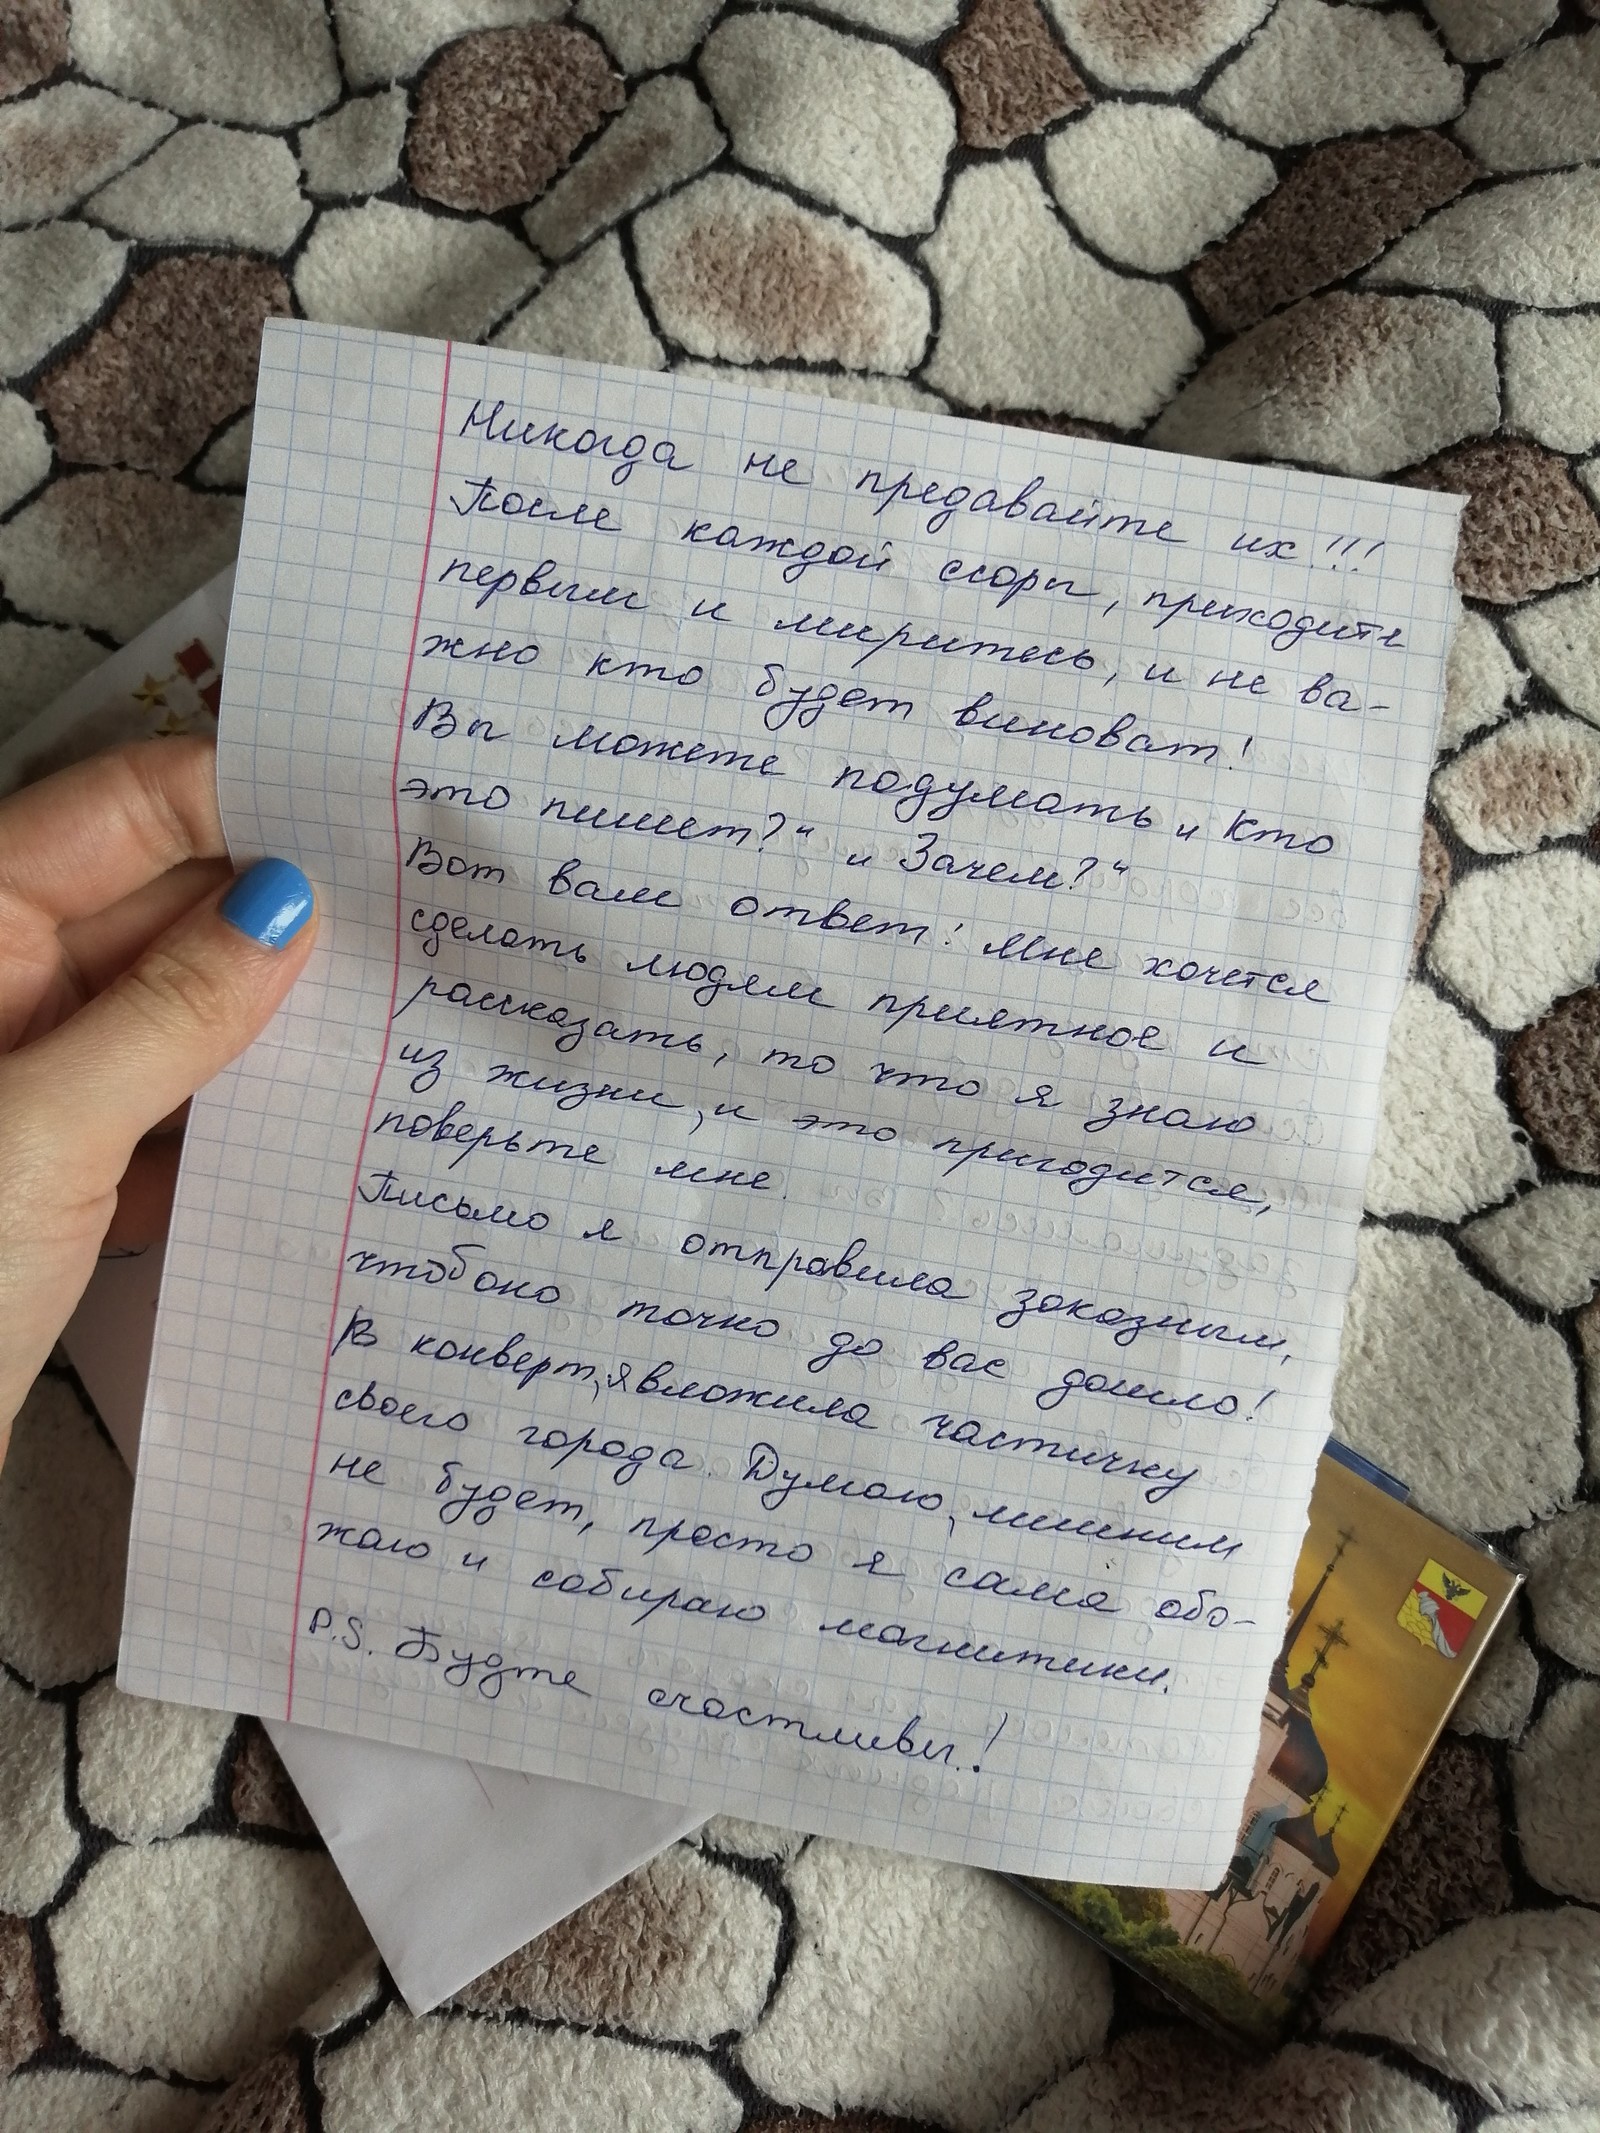 Никогда не предавайте их!!!
После каждой ссоры, приходите
первым и миритесь, и не ва-
жно кто будет виноват!
Вы можете подумать „Кто
это пишет?“ „Зачем?“
Вот вам ответ: мне хочется
сделать людям приятное и
рассказать, то что я знаю
из жизни, и это пригодится,
поверьте мне.
Письмо я отправила заказным,
чтоб оно точно до вас дошло!
В конверт, я вложила частичку
своего города. Думаю, лишним
не будет, просто я сама обо-
жаю и собираю магнитики.
P.S. Будте счастливы!